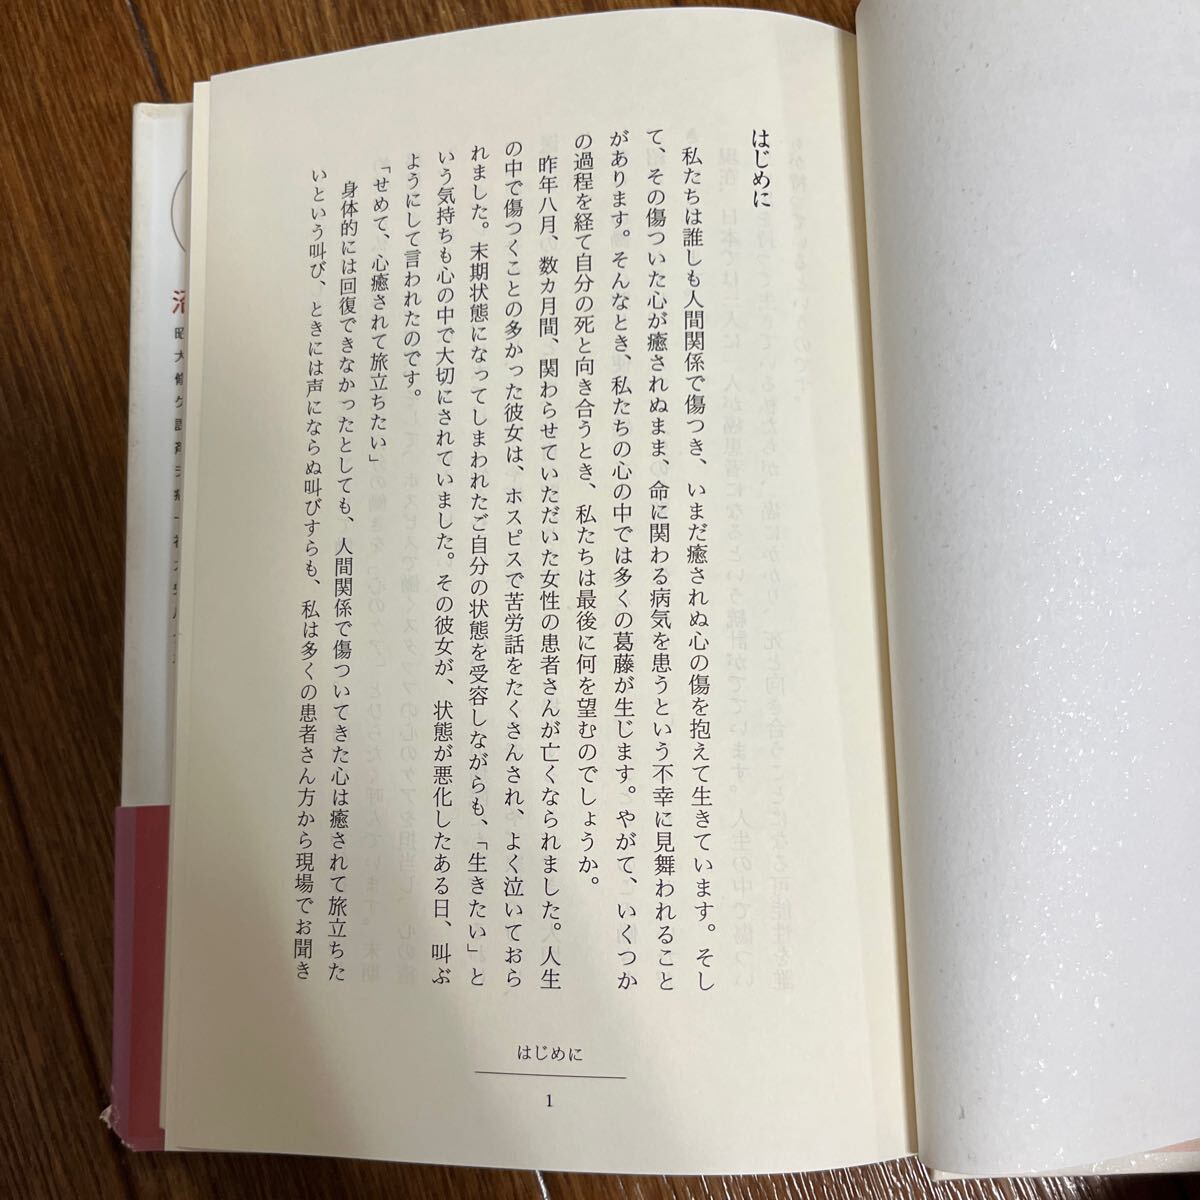 はじめに
私たちは誰しも人間関係で傷つき、いまだ癒されぬ心の傷を抱えて生きています。そし
て、その傷ついた心が癒されぬまま、命に関わる病気を患うという不幸に見舞われること
があります。そんなとき、私たちの心の中では多くの葛藤が生じます。やがて、いくつか
の過程を経て自分の死と向き合うとき、私たちは最後に何を望むのでしょうか。
昨年八月、数カ月間、関わらせていただいた女性の患者さんが亡くなられました。人生
の中で傷つくことの多かった彼女は、ホスピスで苦労話をたくさんされ、よく泣いておら
れました。末期状態になってしまわれたご自分の状態を受容しながらも、「生きたい」と
いう気持ちも心の中で大切にされていました。その彼女が、状態が悪化したある日、叫ぶ
ようにして言われたのです。
「せめて、心癒されて旅立ちたい」
身体的には回復できなかったとしても、人間関係で傷ついてきた心は癒されて旅立ちた
いという叫び、ときには声にならぬ叫びすらも、私は多くの患者さん方から現場でお聞き
はじめに
1